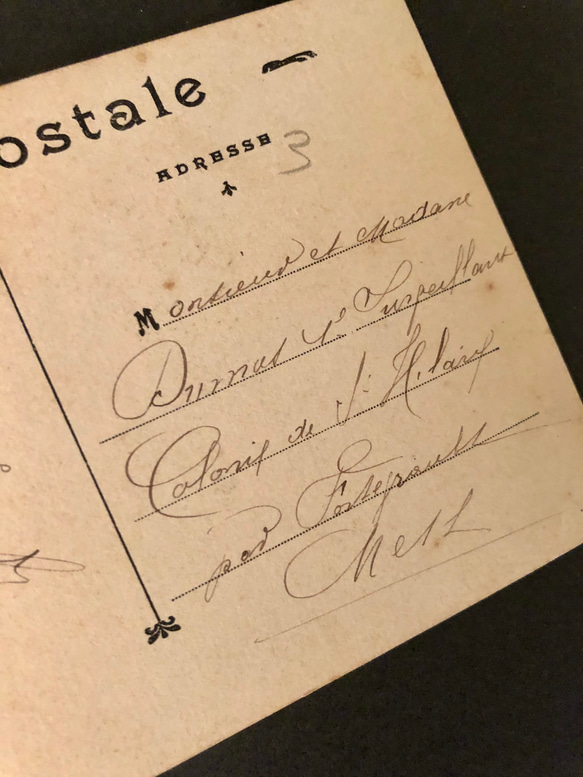 ostale
ADRESSE 3
Monsieur et Madame
Durnat 1er Surveillant
Colonie de St Hilaire
par Fontevrault
M et L